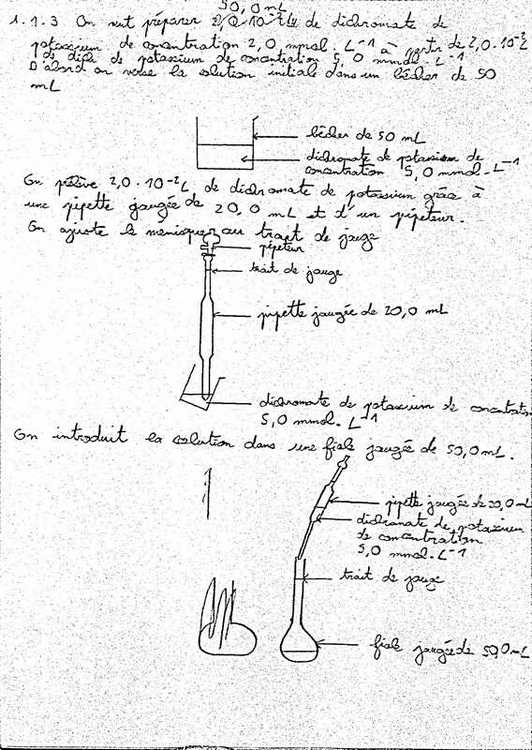 50,0 mL
1.1.3 On veut préparer de dichromate de
potassium de concentration 2,0 mmol. L⁻¹ à partir de 2,0.10⁻²L
de dichr de potassium de concentration 5,0 mmol. L⁻¹
D'abord on verse la solution initiale dans un bécher de 50
mL
bécher de 50 mL
dichromate de potassium de
concentration 5,0 mmol.L⁻¹
On prélève 2,0.10⁻²L de dichromate de potassium grâce à
une pipette jaugée de 20,0 mL et d'un pipeteur.
On ajuste le ménisque au trait de jauge
pipeteur
trait de jauge
pipette jaugée de 20,0 mL
dichromate de potassium de concentration
5,0 mmol. L⁻¹
On introduit la solution dans une fiole jaugée de 50,0 mL.
pipette jaugée de 20,0 mL
dichromate de potassium
de concentration
5,0 mmol.L⁻¹
trait de jauge
fiole jaugée de 50,0 mL